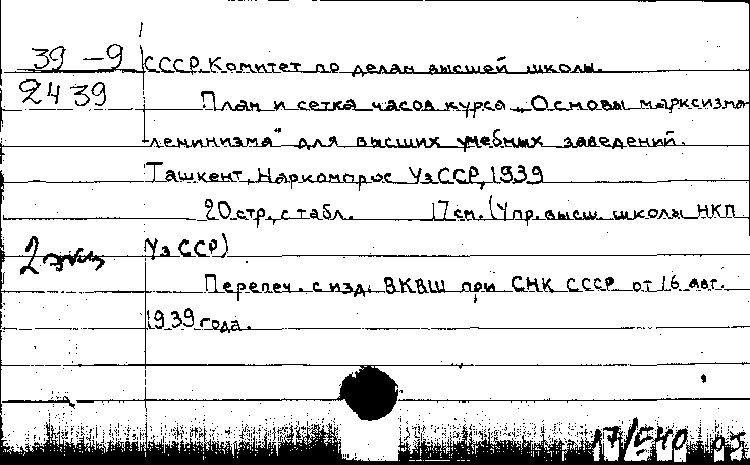 39-9
2439
СССР. Комитет по делам высшей школы.
План и сетка часов курса „Основы марксизма-
-ленинизма" для высших учебных заведений.
Ташкент, Наркомпрос УзССР, 1939
20 стр., с табл. 17 см. (Упр. высш. школы НКП
УзССР)
2 экз
Перепеч. с изд. ВКВШ при СНК СССР от 16 авг.
1939 года.